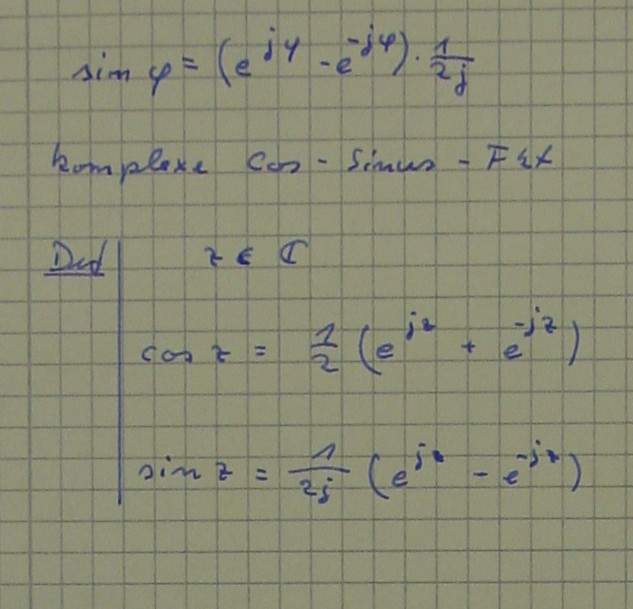 sin φ = (e^{jφ} - e^{-jφ}) · \frac{1}{2j}
komplexe Cos - Sinus - Fkt
Def z ∈ ℂ
cos z = \frac{1}{2} (e^{jz} + e^{-jz})
sin z = \frac{1}{2j} (e^{jz} - e^{-jz})